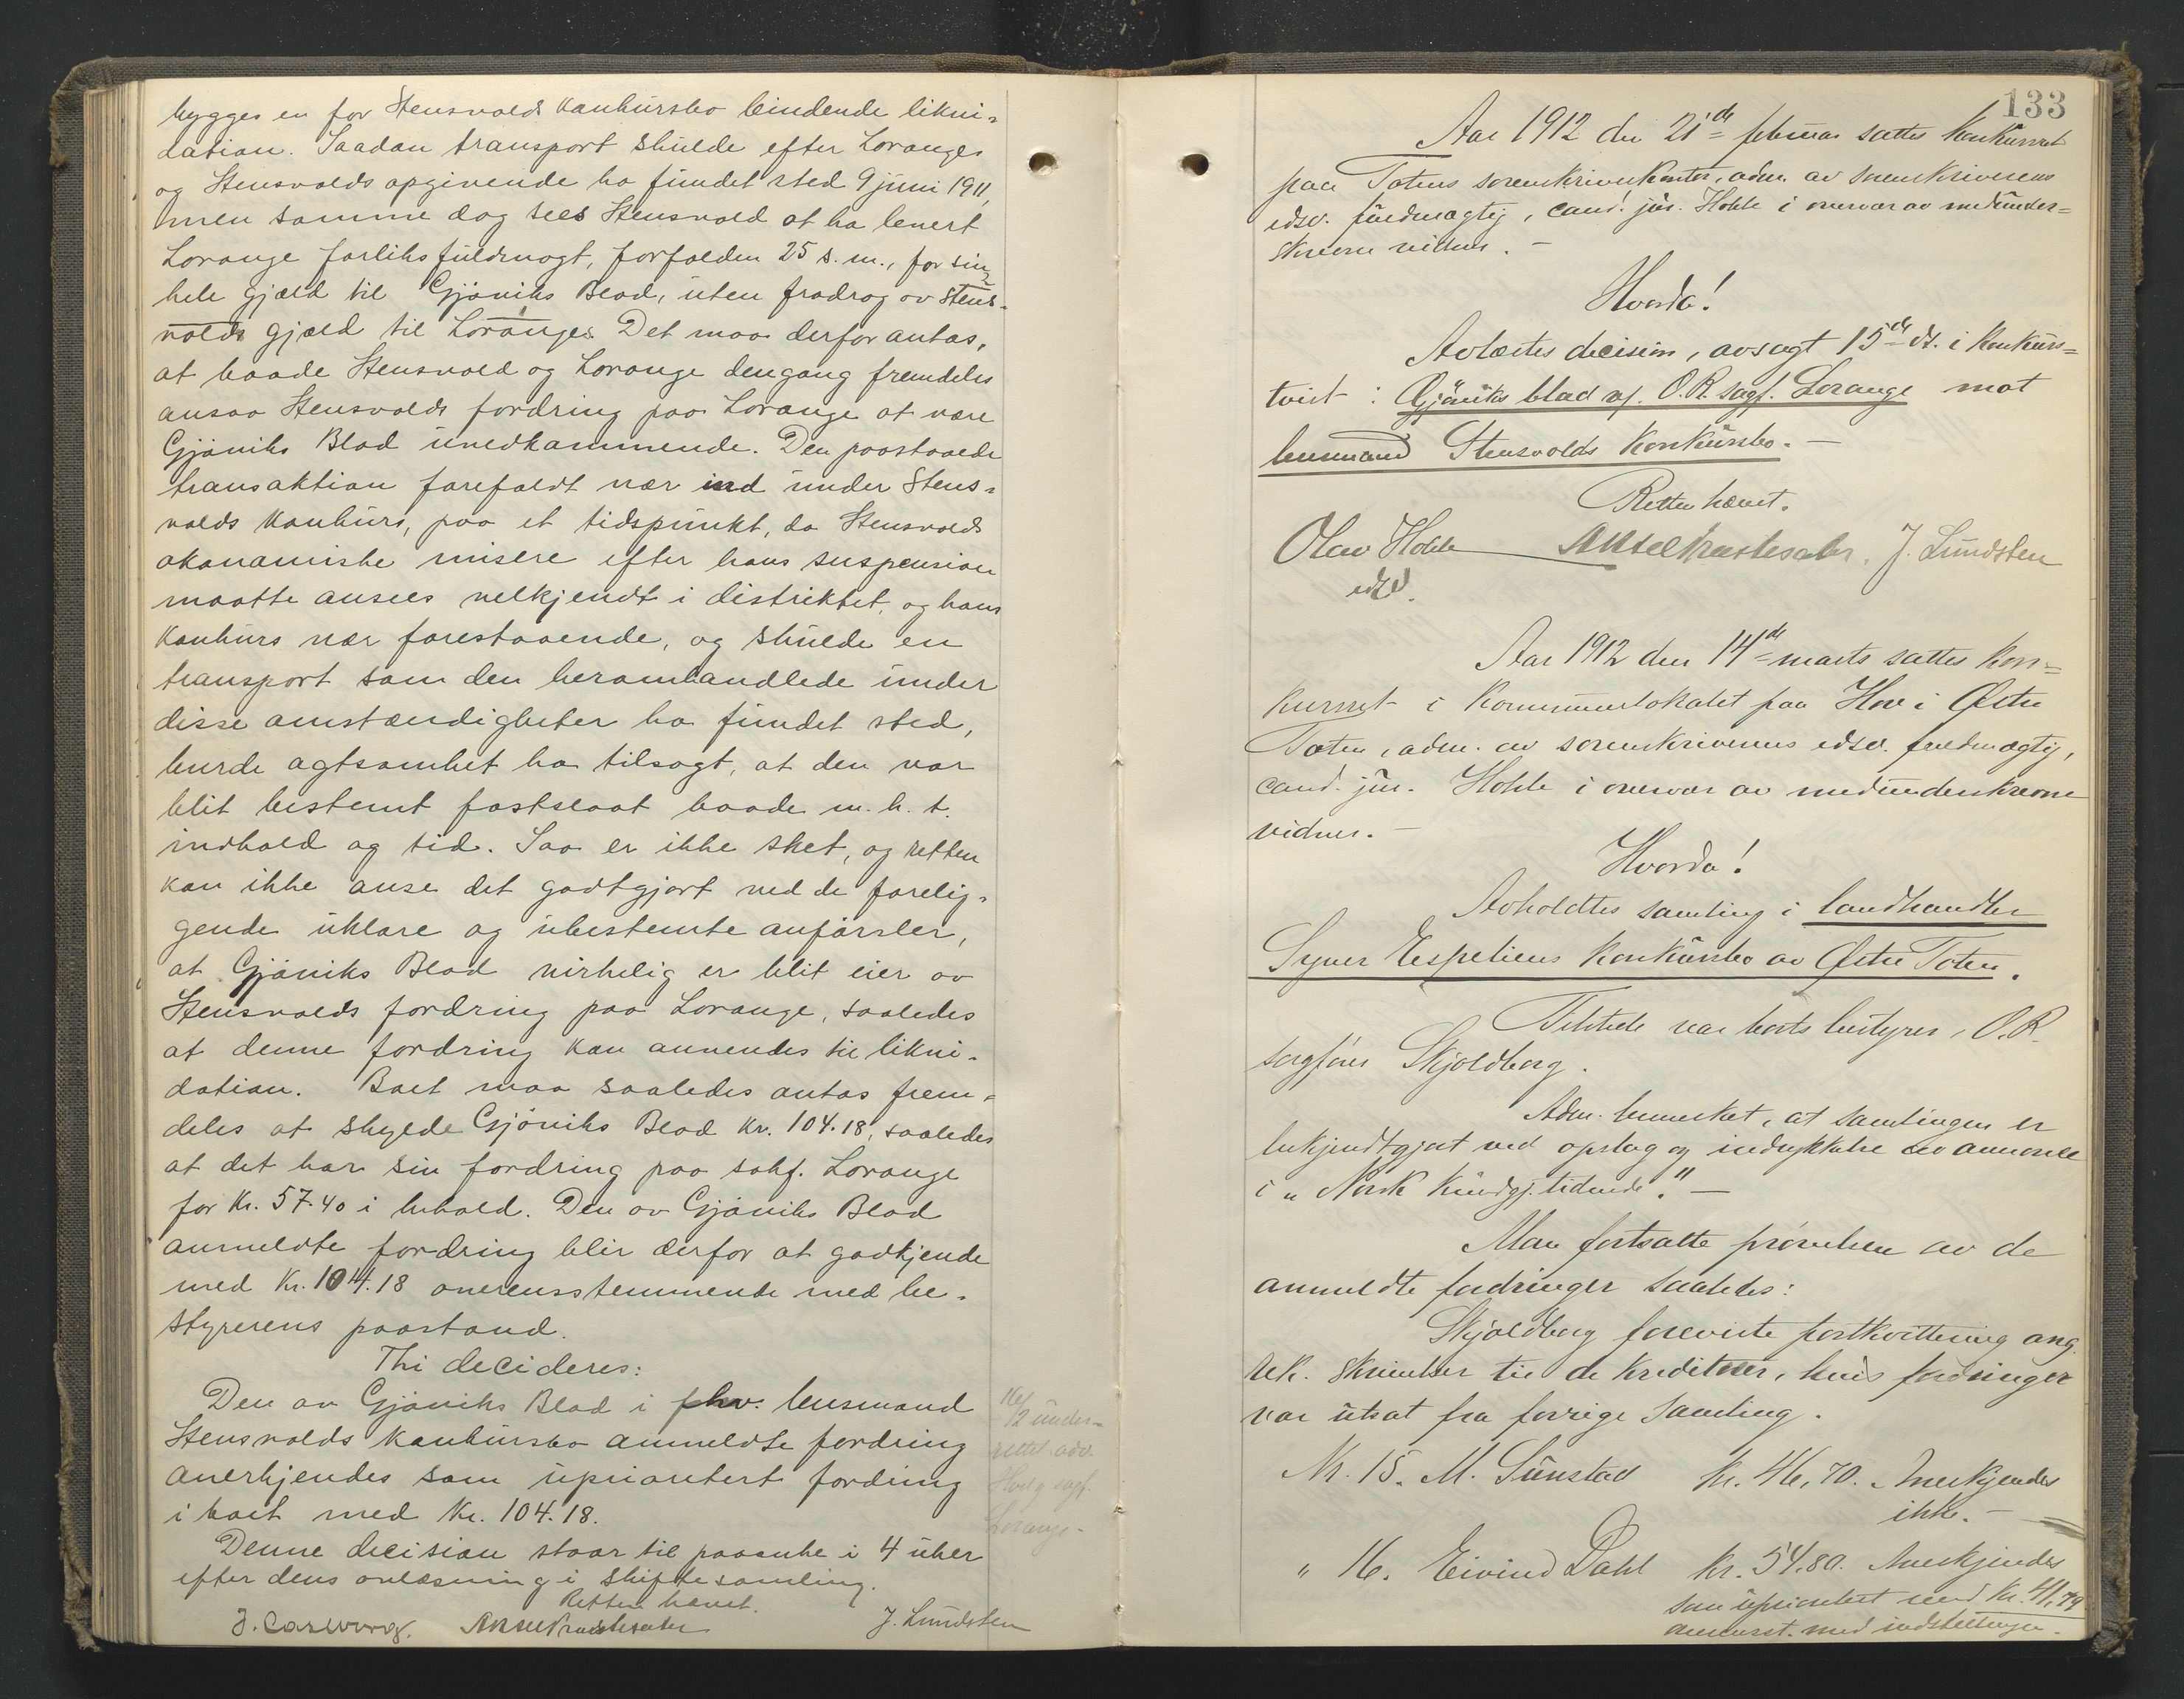 bygges en for Stensvolds konkursbo bindende likvi-
dation. Saadan transport skulde efter Loranges
og Stensvolds opgivende ha fundet sted 9 juni 1911,
men samme dag sees Stensvold at ha levert
Lorange forliksfuldmagt, forfalden 25 s.m., for sin
hele gjæld til Gjøviks Blad, uten fradrag av Stens-
volds gjæld til Loranges. Det maa derfor antas,
at baade Stensvold og Lorange dengang fremdeles
ansaa Stensvolds fordring paa Lorange at være
Gjøviks Blad uvedkommende. Den paastaaede
transaktion forefaldt nær ind under Stens-
volds konkurs, paa et tidspunkt, da Stensvolds
økonomiske misere efter hans suspension
maatte ansees velkjendt i distriktet, og hans
konkurs nær forestaaende, og skulde en
transport som den heromhandlede under
disse omstændigheter ha fundet sted,
burde agtsomhet ha tilsagt, at den var
blit bestemt fastslaat baade m.h.t.
indhold og tid. Saa er ikke sket, og retten
kan ikke anse det godtgjort ved de forelig-
gende uklare og ubestemte anførsler,
at Gjøviks Blad virkelig er blit eier av
Stensvolds fordring paa Lorange, saaledes
at denne fordring kan anvendes til likvi-
dation. Boet maa saaledes antas frem-
deles at skylde Gjøviks Blad kr. 104.18, saaledes
at det har sin fordring paa sakf. Lorange
for kr. 57.40 i behold. Den av Gjøviks Blad
anmeldte fordring blir derfor at godkjende
med kr. 104.18 overensstemmende med be-
styrerens paastand.
Thi decideres:
Den av Gjøviks Blad i fhv. lensmand
Stensvolds konkursbo anmeldte fordring
anerkjendes som uprioritert fordring
i boet med kr. 104.18.
Denne decision staar til paaanke i 4 uker
efter dens oplæsning i skiftesamling.
Retten hævet.
J. Carlborg. J. Lundsten
12 under-
rettet adv.
Lorange.
133
Aar 1912 den 21de februar sattes konkursret
paa Totens sorenskriverkontor, adm. av sorenskriverens
edsv. fuldmægtig, cand. jur. Holte i overvær av medunder-
skrevne vidner. –
Hvorda!
Avlæstes decision, avsagt 15de ds. i konkurs-
tvist: Gjøviks blad v/ O.R. sagf. Lorange mot
lensmand Stensvolds konkursbo. –
Retten hævet.
Olav Holte J. Lundsten
edsv.
Aar 1912 den 14de marts sattes kon-
kursret i kommunelokalet paa Hov i Østre
Toten, adm. av sorenskriverens edsv. fuldmægtig,
cand. jur. Holte i overvær av medunderskrevne
vidner. –
Hvorda!
Avholdtes samling i landhandler
Syver Espeliens konkursbo av Østre Toten.
Tilstede var boets bestyrer, O.R.
sagfører Skjoldborg.
Adm. bemerket, at samlingen er
bekjendtgjort ved opslag og indrykkelse av annonce
i „Norsk Kundgj. tidende." –
Man fortsatte prøvelsen av de
anmeldte fordringer saaledes:
Skjoldborg foreviste postkvittering ang.
rek. skrivelser til de kreditorer, hvis fordringer
var utsat fra forrige samling.
Nr. 15. M. Sünstad kr. 46,70. Anerkjendes
ikke. –
" 16. Eivind Dahl kr. 54.80. Anerkjendes
som uprioritert med kr. 41,79
overensst. med indstillingen.